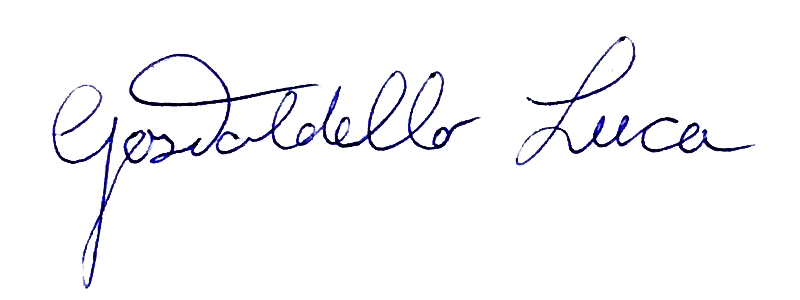 Gosvaldello Luca